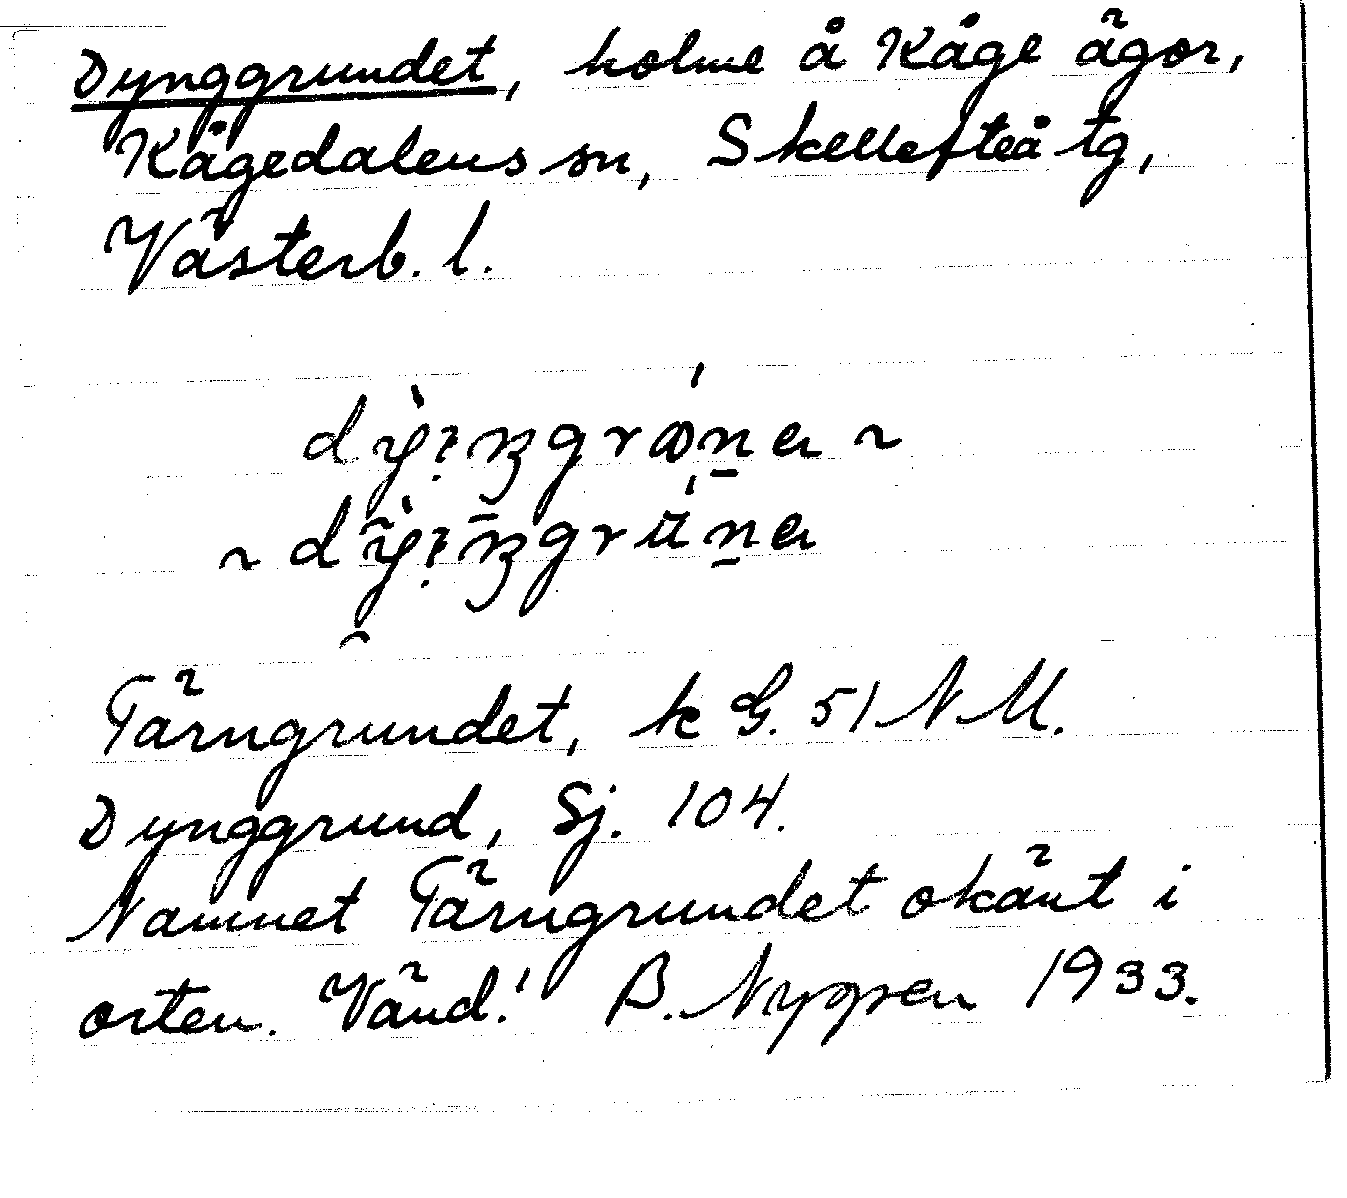 Dynggrundet, holme å Kåge ägor,
Kågedalens sn, Skellefteå tg,
Västerb. l.
Tärngrundet, k G. 51 N M.
Dynggrund, Sj. 104.
Namnet Tärngrundet okänt i
orten. Vänd! B. Nygren 1933.